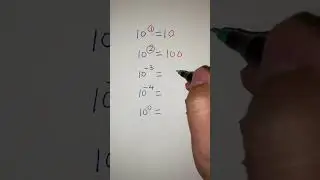 10^① = 10
10^② = 100
10^-3 =
10^-4 =
10^0 =